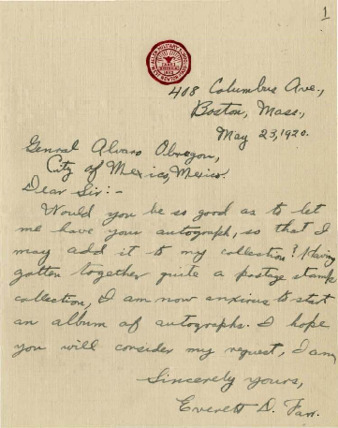 1
408 Columbus Ave.,
Boston, Mass.,
May 23, 1920.
Genral Alvaro Obregon,
City of Mexico, Mexico.
Dear Sir:-
Would you be so good as to let
me have your autograph, so that I
may add it to my collection? Having
gotten together quite a postage stamp
collection, I am now anxious to start
an album of autographs. I hope
you will consider my request, I am
Sincerely yours,
Everett D. Farr.